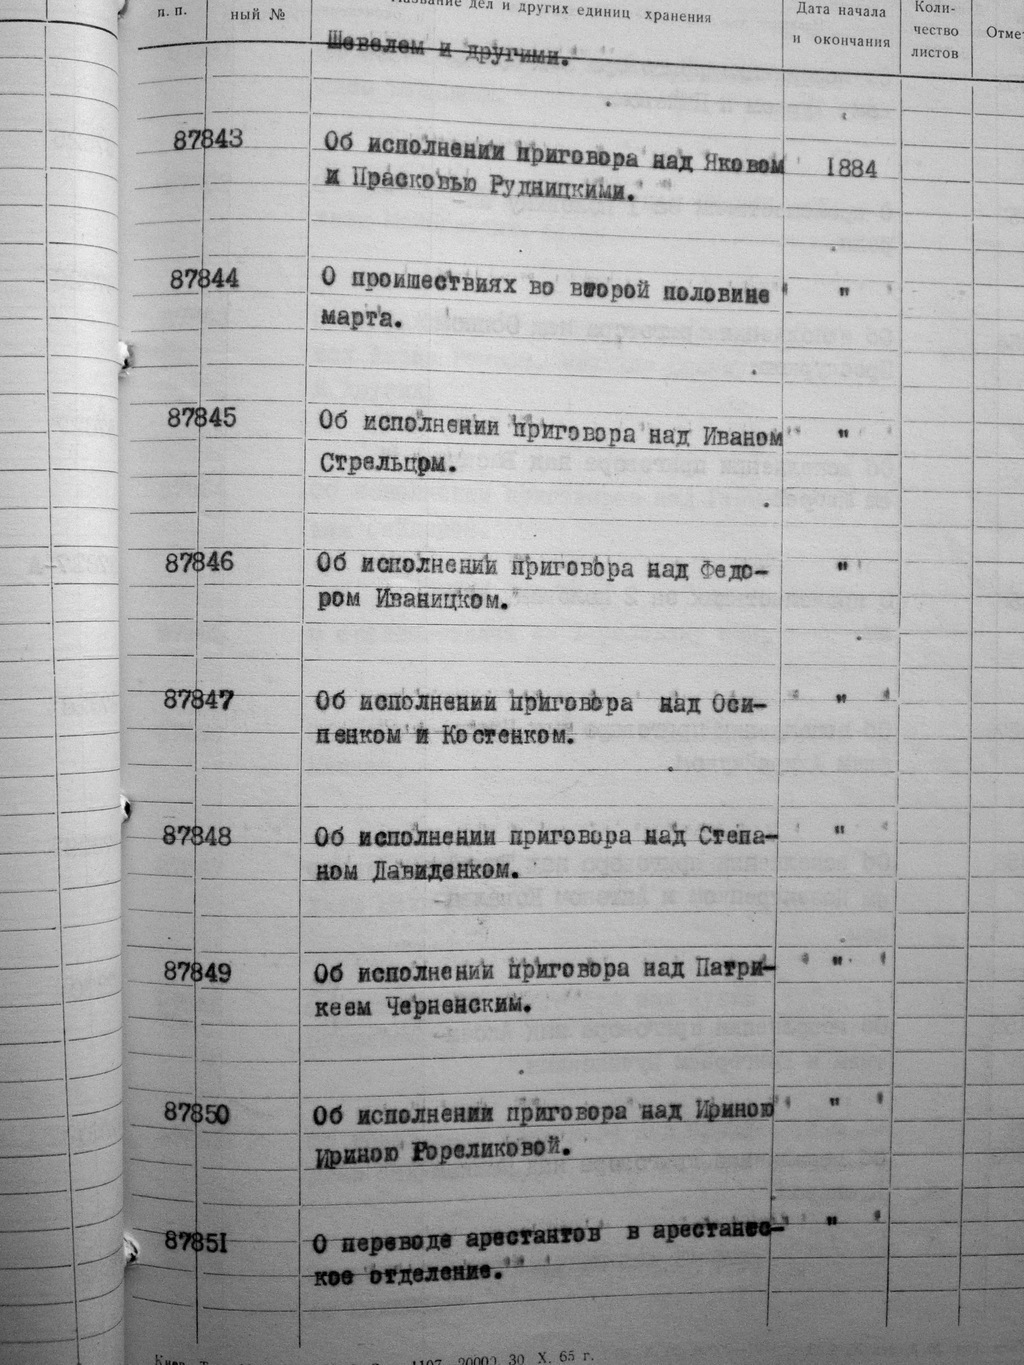 п. п.
ный №
Название дел и других единиц хранения
Дата начала
и окончания
Коли-
чество
листов
Отме
Шевелем и другими.
87843
Об исполнении приговора над Яковом
1884
и Прасковью Рудницкими.
87844
О проишествиях во второй половине "
марта.
87845
Об исполнении приговора над Иваном "
Стрельцом.
87846
Об исполнении приговора над Федо- "
ром Иваницком.
87847
Об исполнении приговора над Оси- "
пенком и Костенком.
87848
Об исполнении приговора над Степа- "
ном Давиденком.
87849
Об исполнении приговора над Патри- "
кеем Черненским.
87850
Об исполнении приговора над Ириною "
Ириною Гореликовой.
87851
О переводе арестантов в арестанс- "
кое отделение.
Киев 1107 20000 30 X. 65 г.